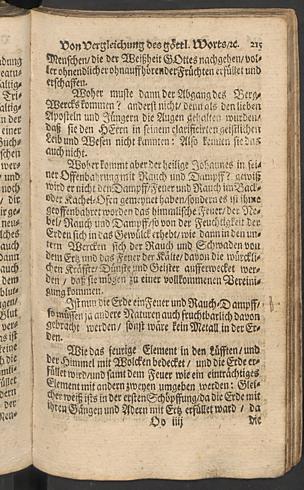 Von Vergleichung des göttl. Worts/ꝛc. 215
Menschen/ die der Weißheit GOttes nachgehen/ vol-
ler ohnendlicher ohnauffhörender Früchten erfüllet und
erschaffen.
Woher muste dann der Abgang des Berg-
Wercks kommen? anderst nicht/ denn als den lieben
Aposteln und Jüngern die Augen gehalten wurden/
daß sie den HErrn in seinem clarificirten geistlichen
Leib und Wesen nicht kannten: Also kennen sie das
auch nicht.
Woher kommt aber der heilige Johannes in sei-
ner Offenbahrung mit Rauch und Dampff? gewiß
wird er nicht den Dampff/ Feuer und Rauch im Back-
oder Kachel-Ofen gemeynet haben/ sondern es ist ihme
geoffenbahret worden das himmlische Feuer/ der Ne-
bel/ Rauch und Dampff/ so von der Feuchtigkeit der
Erden sich in das Gewülck erhebt/ wie dann in den un-
tern Wercken sich der Rauch und Schwaden von
dem Ertz und das Feuer der Kälte/ davon die würckli-
chen Kräffte/ Dünste und Geister aufferwecket wer-
den/ daß sie mögen zu einer vollkommenen Vereini-
gung kommen.
Ist nun die Erde ein Feuer und Rauch-Dampff/
so müssen ja andere Naturen auch fruchtbarlich davon
gebracht werden/ sonst wäre kein Metall in der Er-
den.
Wie das feurige Element in den Lüfften/ und
der Himmel mit Wolcken bedecket/ und die Erde er-
füllet wird/ und samt dem Feuer wie ein einträchtiges
Element mit andern zweyen umgeben werden: Glei-
cher weiß ists in der ersten Schöpffung/ da die Erde mit
ihren Gängen und Adern mit Ertz erfüllet ward/ da
Oo iiij die